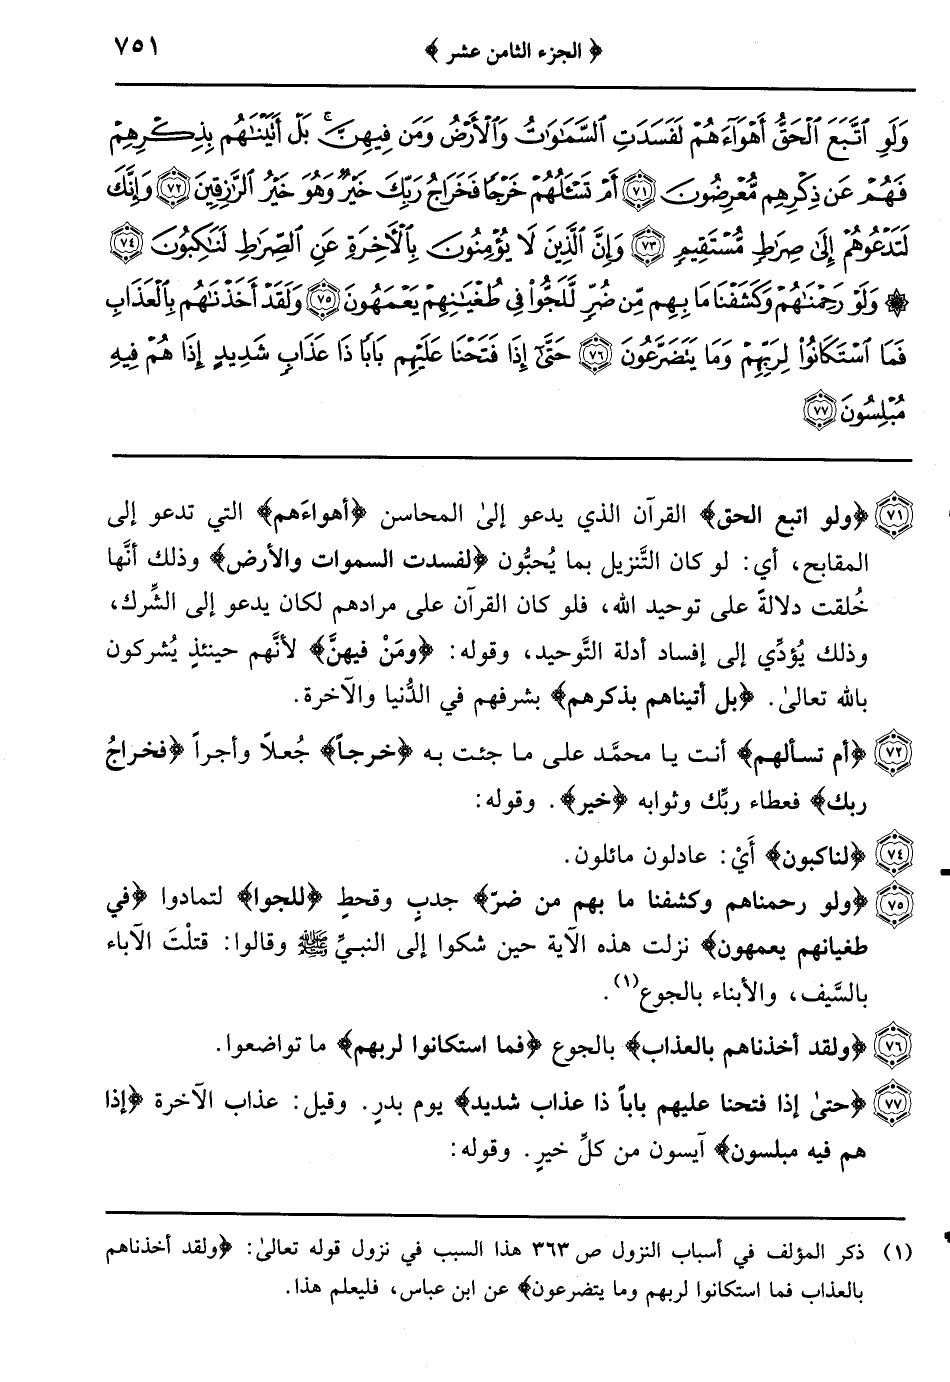 ﴿ الجزء الثامن عشر ﴾ ٧٥١
وَلَوِ ٱتَّبَعَ ٱلْحَقُّ أَهْوَآءَهُمْ لَفَسَدَتِ ٱلسَّمَٰوَٰتُ وَٱلْأَرْضُ وَمَن فِيهِنَّ ۚ بَلْ أَتَيْنَٰهُم بِذِكْرِهِمْ
فَهُمْ عَن ذِكْرِهِم مُّعْرِضُونَ ﴿٧١﴾ أَمْ تَسْـَٔلُهُمْ خَرْجًا فَخَرَاجُ رَبِّكَ خَيْرٌ ۖ وَهُوَ خَيْرُ ٱلرَّٰزِقِينَ ﴿٧٢﴾ وَإِنَّكَ
لَتَدْعُوهُمْ إِلَىٰ صِرَٰطٍ مُّسْتَقِيمٍ ﴿٧٣﴾ وَإِنَّ ٱلَّذِينَ لَا يُؤْمِنُونَ بِٱلْأَخِرَةِ عَنِ ٱلصِّرَٰطِ لَنَٰكِبُونَ ﴿٧٤﴾
۞ وَلَوْ رَحِمْنَٰهُمْ وَكَشَفْنَا مَا بِهِم مِّن ضُرٍّ لَّلَجُّوا۟ فِى طُغْيَٰنِهِمْ يَعْمَهُونَ ﴿٧٥﴾ وَلَقَدْ أَخَذْنَٰهُم بِٱلْعَذَابِ
فَمَا ٱسْتَكَانُوا۟ لِرَبِّهِمْ وَمَا يَتَضَرَّعُونَ ﴿٧٦﴾ حَتَّىٰٓ إِذَا فَتَحْنَا عَلَيْهِم بَابًا ذَا عَذَابٍ شَدِيدٍ إِذَا هُمْ فِيهِ
مُبْلِسُونَ ﴿٧٧﴾
﴿٧١﴾ ﴿ولو اتبع الحق﴾ القرآن الذي يدعو إلىٰ المحاسن ﴿أهواءَهم﴾ التي تدعو إلى
المقابح، أي: لو كان التَّنزيل بما يُحبُّون ﴿لفسدت السموات والأرض﴾ وذلك أنَّها
خُلقت دلالةً على توحيد الله، فلو كان القرآن على مرادهم لكان يدعو إلى الشِّرك،
وذلك يُؤدِّي إلى إفساد أدلة التَّوحيد، وقوله: ﴿ومَنْ فيهنَّ﴾ لأنَّهم حينئذٍ يُشركون
بالله تعالىٰ. ﴿بل أتيناهم بذكرهم﴾ بشرفهم في الدُّنيا والآخرة.
﴿٧٢﴾ ﴿أم تسألهم﴾ أنت يا محمَّد على ما جئت به ﴿خرجاً﴾ جُعلاً وأجراً ﴿فخراجُ
ربك﴾ فعطاء ربِّك وثوابه ﴿خير﴾. وقوله:
﴿٧٤﴾ ﴿لناكبون﴾ أَيْ: عادلون مائلون.
﴿٧٥﴾ ﴿ولو رحمناهم وكشفنا ما بهم من ضرّ﴾ جدبٍ وقحطٍ ﴿للجوا﴾ لتمادوا ﴿في
طغيانهم يعمهون﴾ نزلت هذه الآية حين شكوا إلى النبيِّ ﷺ وقالوا: قتلْتَ الآباء
بالسَّيف، والأبناء بالجوع(١).
﴿٧٦﴾ ﴿ولقد أخذناهم بالعذاب﴾ بالجوع ﴿فما استكانوا لربهم﴾ ما تواضعوا.
﴿٧٧﴾ ﴿حتىٰ إذا فتحنا عليهم باباً ذا عذاب شديد﴾ يوم بدرٍ. وقيل: عذاب الآخرة ﴿إذا
هم فيه مبلسون﴾ آيسون من كلِّ خيرٍ. وقوله:
(١) ذكر المؤلف في أسباب النزول ص ٣٦٣ هذا السبب في نزول قوله تعالىٰ: ﴿ولقد أخذناهم
بالعذاب فما استكانوا لربهم وما يتضرعون﴾ عن ابن عباس، فليعلم هذا.